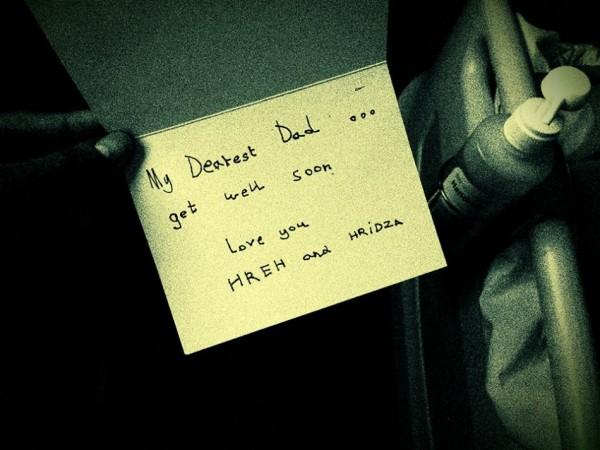 My Dearest Dad ...
get well soon
Love you
HREH and HRiDZA